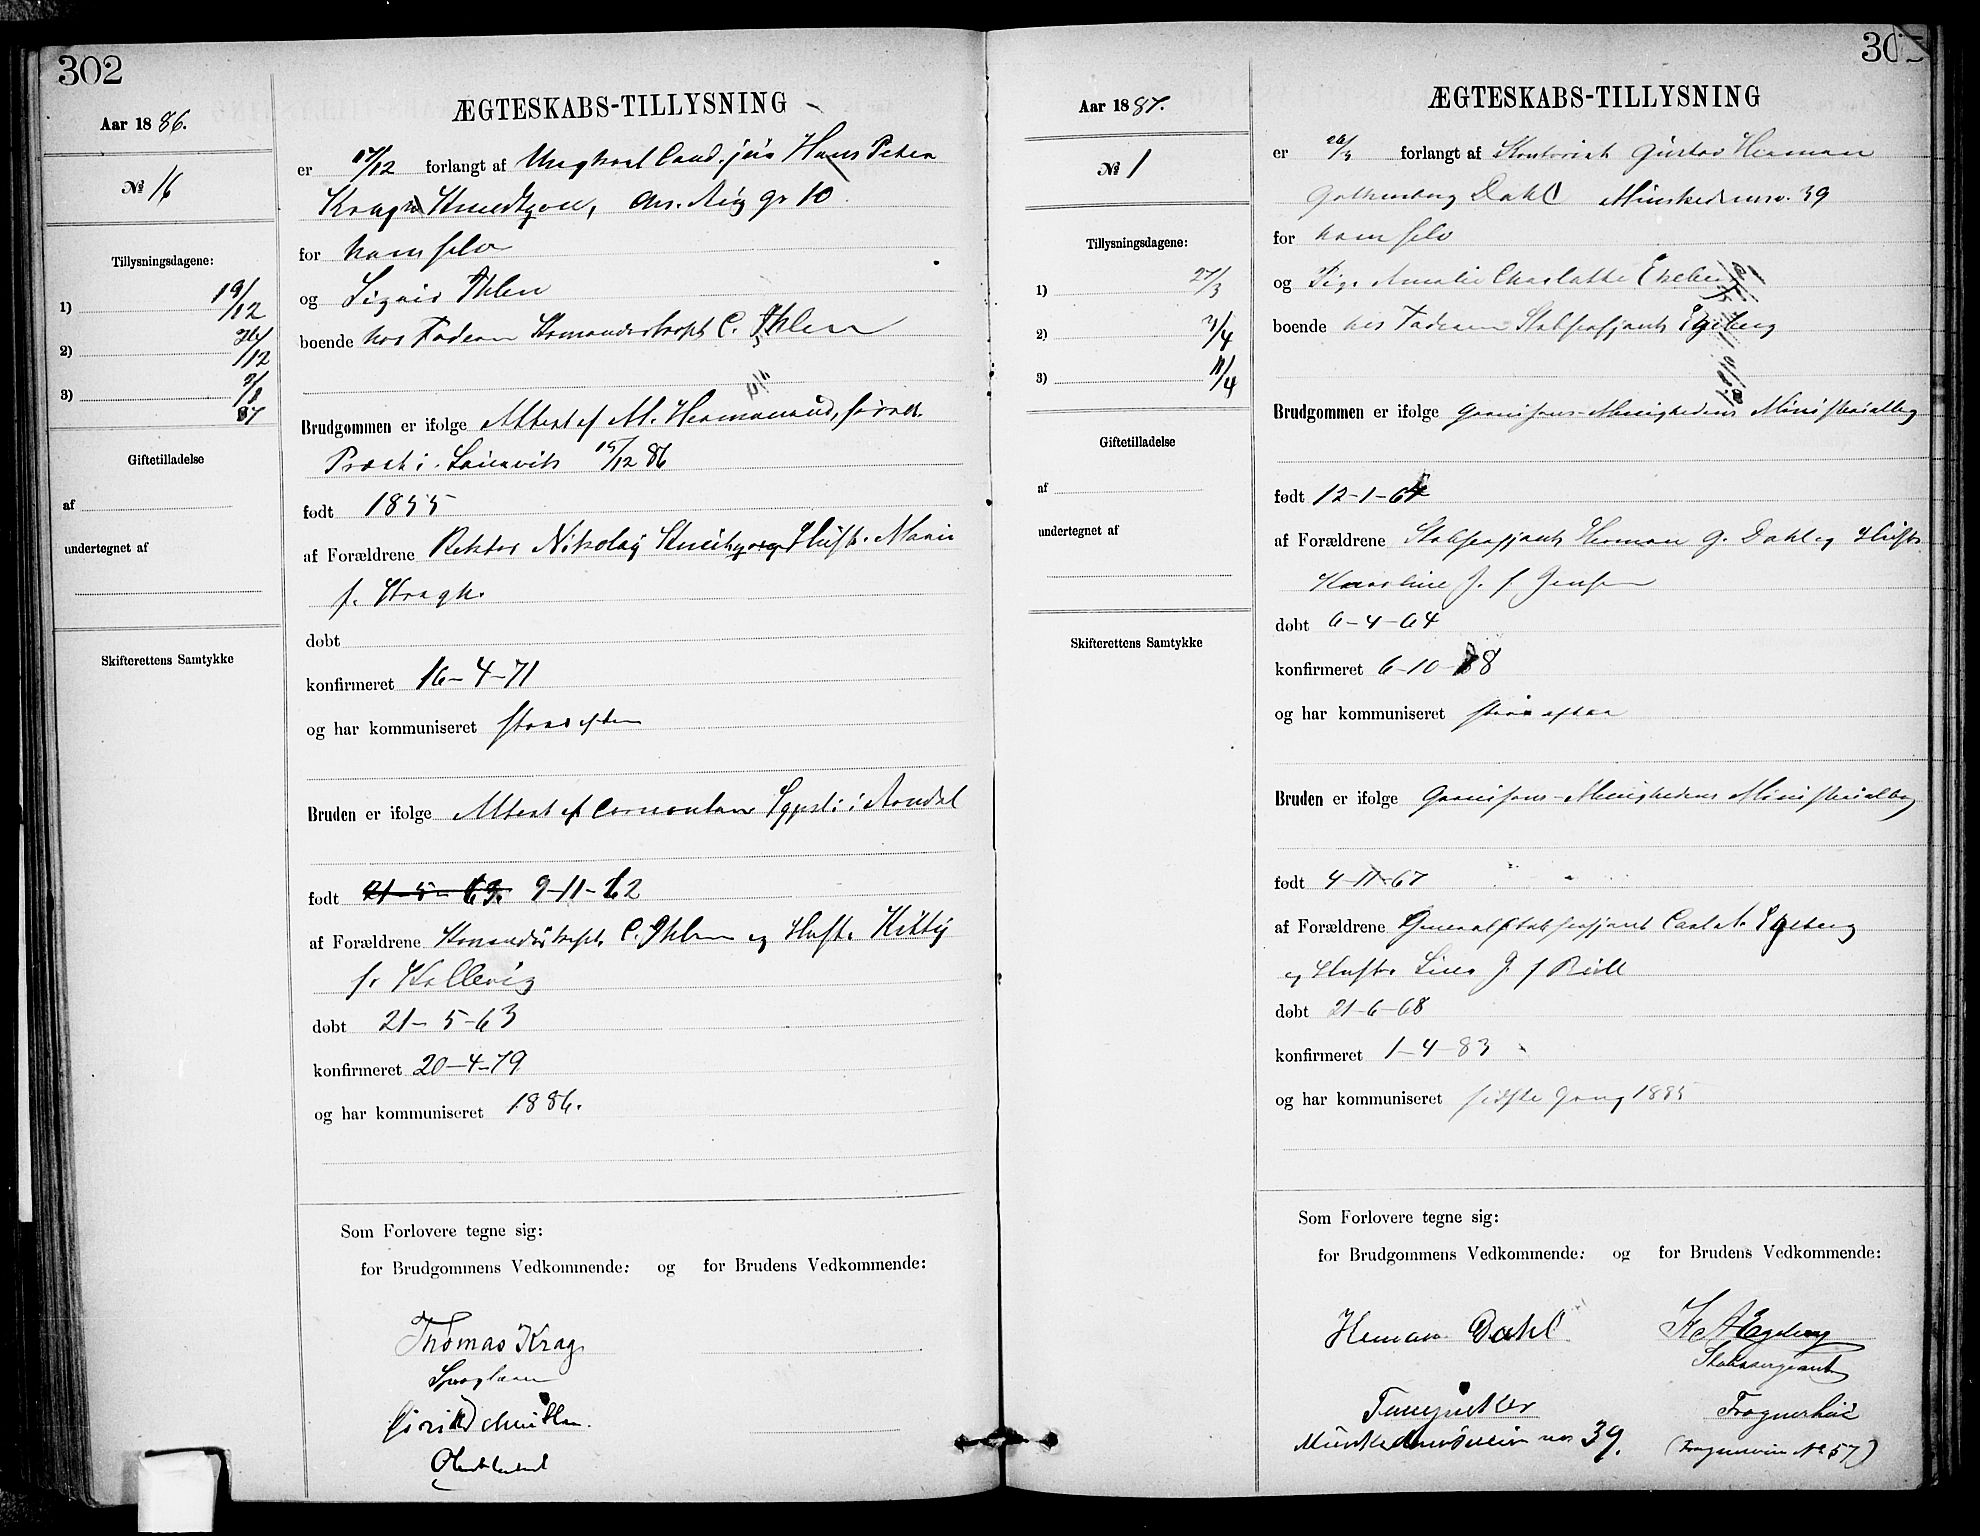 302
Aar 1886.
№ 16
Tillysningsdagene:
1) 19/12
2) 26/12
3) 2/1 87
Giftetilladelse
af
undertegnet af
Skifterettens Samtykke
ÆGTESKABS-TILLYSNING
er 17/12 forlangt af Ungkarl Cand. jur Hans Peter
Kragh
for ham selv
og Sigrid Ihlen
boende hos Faderen C. Ihlen
Brudgommen er ifølge Attest af
Præst i 15/12 86
født 1855
af Forældrene Rektor Nikolaj Hust. Marie
f. Kragh.
døbt
konfirmeret 16-4-71
og har kommuniseret
Bruden er ifølge Attest af i Arendal
født 21-5-63. 9-11-62
af Forældrene C. Ihlen og Hust. Kitty
f. Kallevig
døbt 21-5-63
konfirmeret 20-4-79
og har kommuniseret 1886.
Som Forlovere tegne sig:
for Brudgommens Vedkommende: og for Brudens Vedkommende:
Thomas Krag
303
Aar 1887.
№ 1
Tillysningsdagene:
1) 27/3
2) 3/4
3) 11/4
Giftetilladelse
af
undertegnet af
Skifterettens Samtykke
ÆGTESKABS-TILLYSNING
er 26/3 forlangt af Kontorist Gustav Herman
Dahl Munkedamsv. 39
for ham selv
og Pige Amalie Charlotte Egeberg
boende hos Faderen Stabssersjant Egeberg
Brudgommen er ifølge Garnisons-Menighedens Ministerialbog
født 12-1-64
af Forældrene Stabssersjant Herman G. Dahl og Hust.
Karoline J. f Jensen
døbt 6-4-64
konfirmeret 6-10-78
og har kommuniseret
Bruden er ifølge Garnisons-Menighedens Ministerialbog
født 4-11-67
af Forældrene Generalstabssersjant Carl A. Egeberg
og Hust.
døbt 21-6-68
konfirmeret 1-4-83
og har kommuniseret sidste Gang 1885
Som Forlovere tegne sig:
for Brudgommens Vedkommende: og for Brudens Vedkommende:
Herman Dahl K A Egeberg
Stabssergeant
39. (Frognerveien № 57)